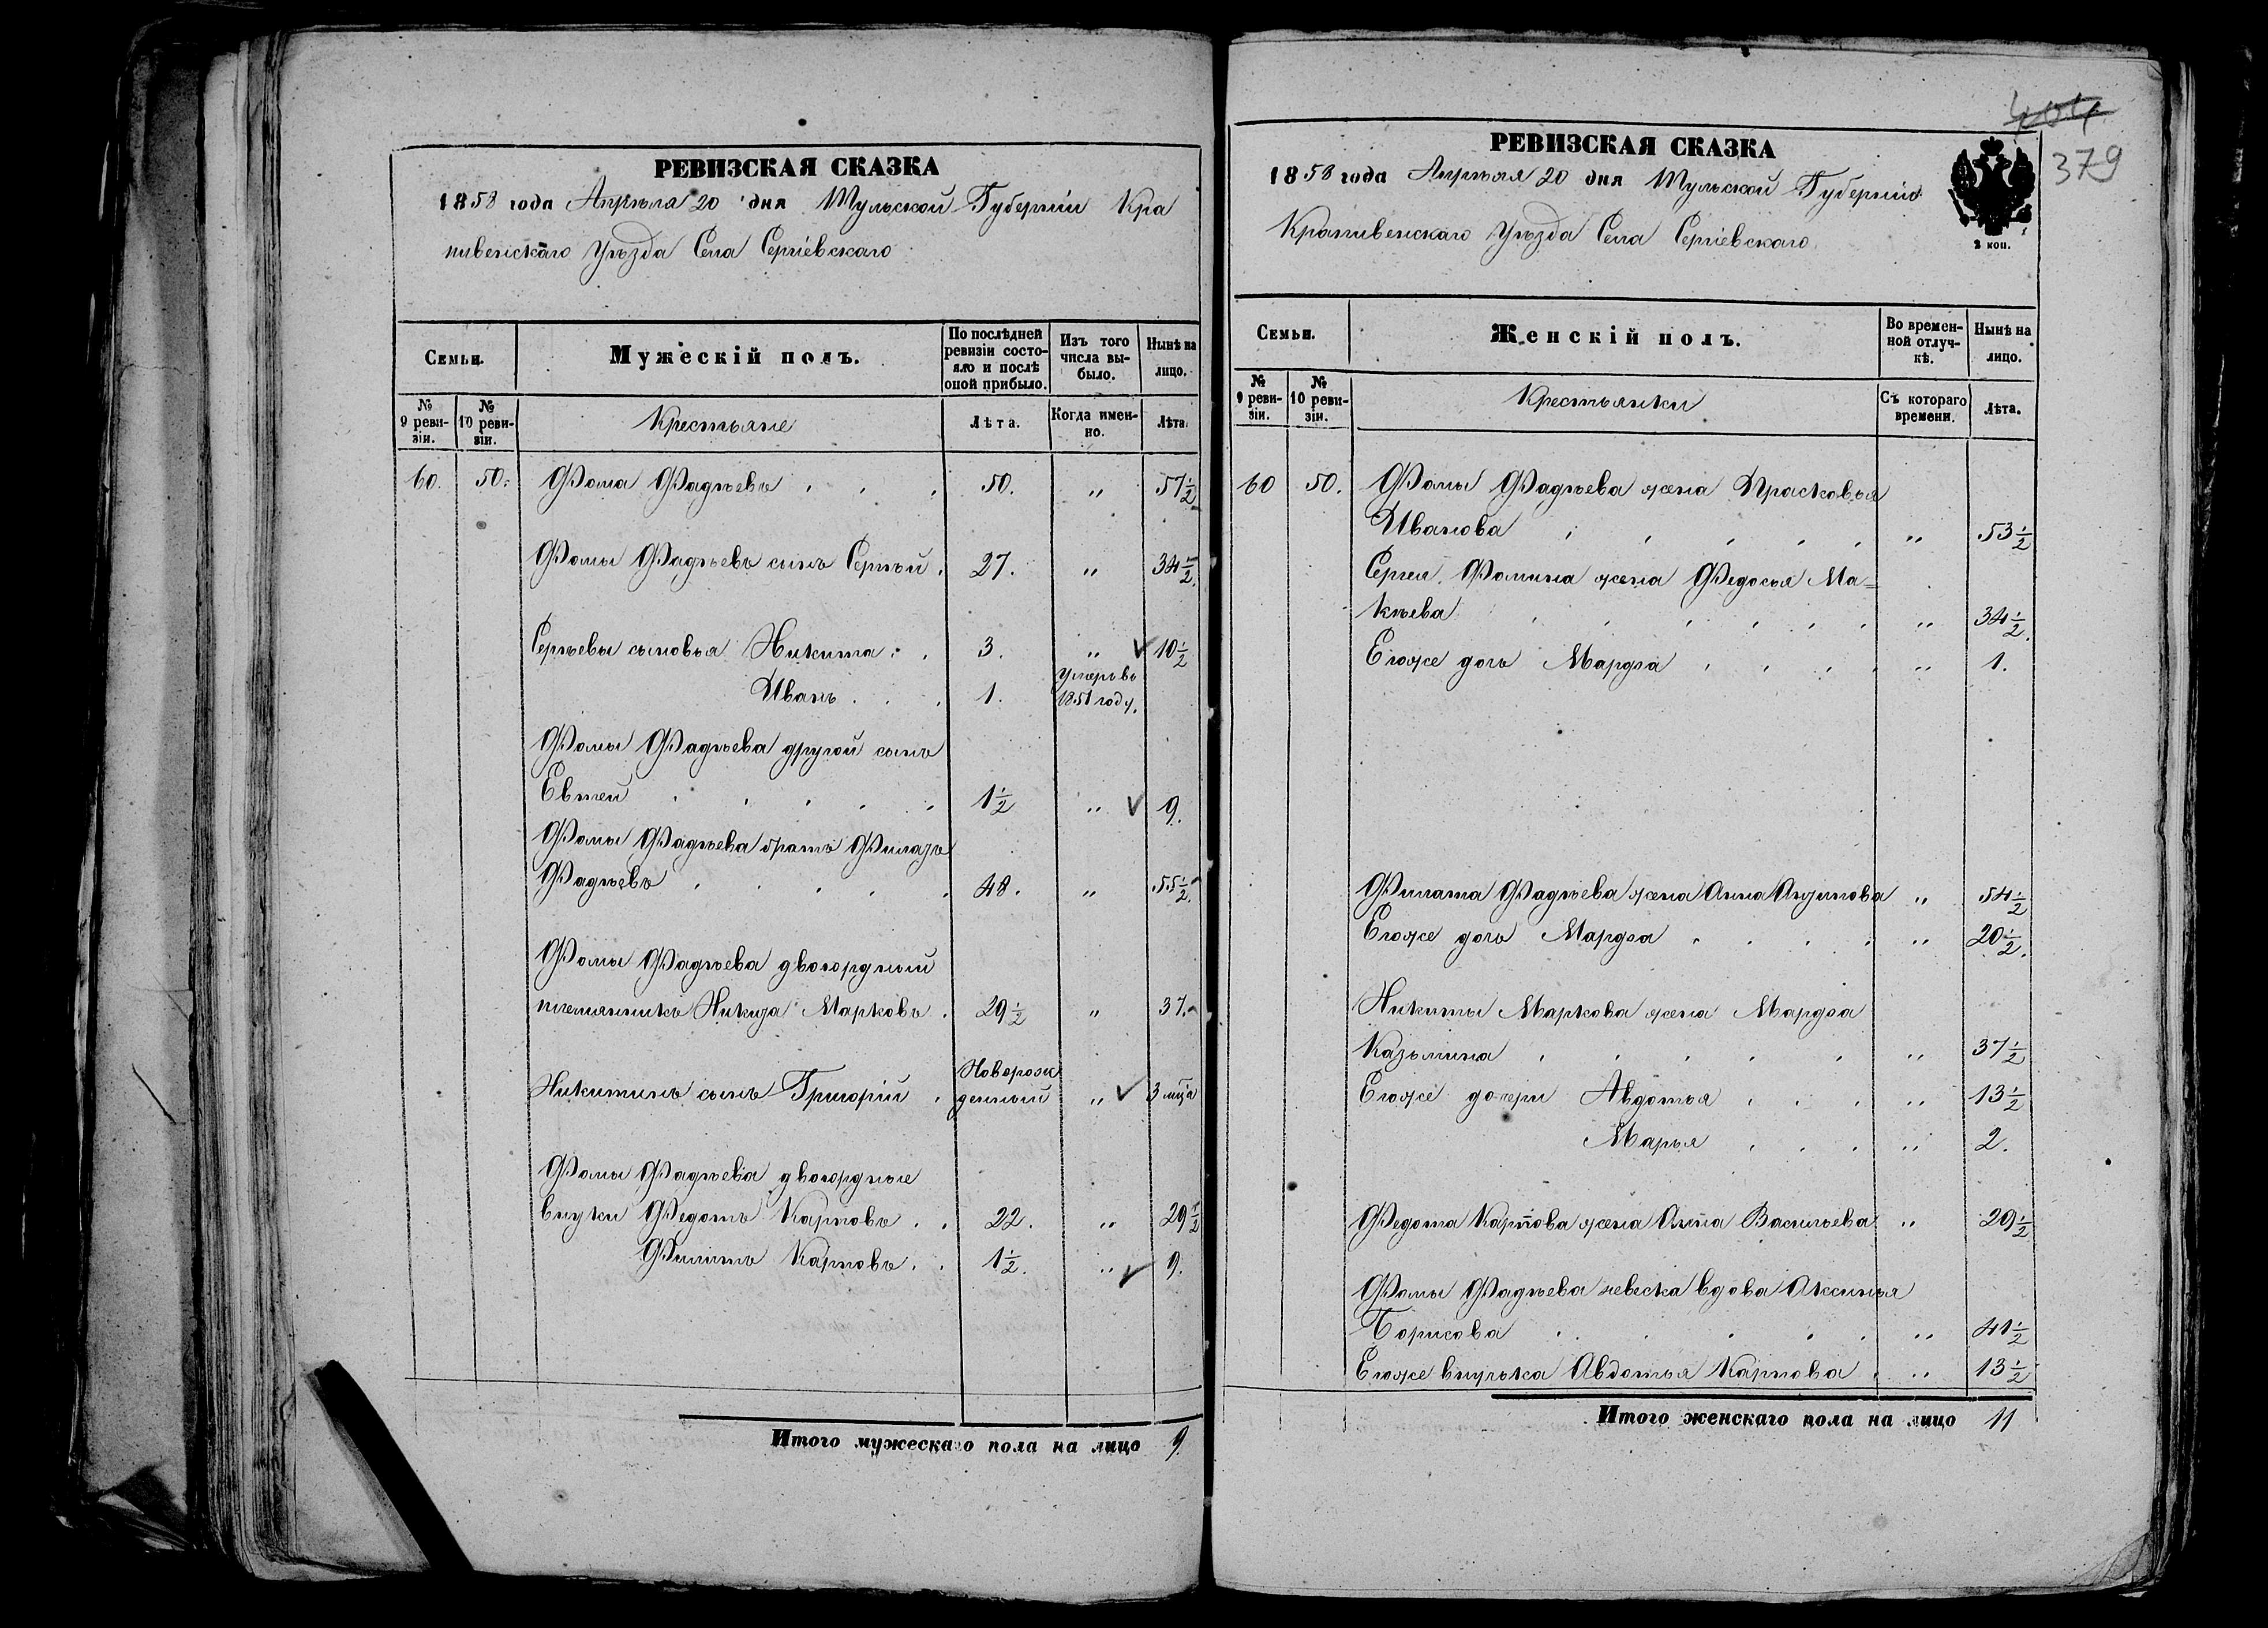 РЕВИЗСКАЯ СКАЗКА
1858 года Апрѣля 20 дня Тульской Губерніи Кра
пивенскаго Уѣзда Села Сергіевскаго
Семьи.
Мужескій полъ.
По послѣдней ревизіи состояло и послѣ оной прибыло.
Изъ того числа выбыло.
Нынѣ на лицо.
№ 9 ревизіи.
№ 10 ревизіи.
Крестьяне
Лѣта.
Когда именно.
Лѣта.
60. 50. Фома Фадѣевъ 50. " 57½
Фомы Фадѣевъ сынъ Сергѣй. 27. " 34½.
Сергѣевы сыновья Никита 3. " √ 10½
Иванъ 1. умеръ въ 1851 году.
Фомы Фадѣева другой сынъ
Евтей 1½ " √ 9.
Фомы Фадѣева братъ Филатъ
Фадѣевъ 48. " 55½.
Фомы Фадѣева двоюрдный
племянникъ Никита Марковъ. 29½ " 37.
Никитинъ сынъ Григорій Новорожденный " √ 3 мца
Фомы Фадѣева двоюрдные
внуки Федотъ Карповъ 22. " 29½
Филипъ Карповъ 1½. " √ 9.
Итого мужескаго пола на лицо 9.
404
379
РЕВИЗСКАЯ СКАЗКА
1858 года Апрѣля 20 дня Тульской Губерніи
Крапивенскаго Уѣзда Села Сергіевскаго.
2 коп.
Семьи.
Женскій полъ.
Во временной отлучкѣ.
Нынѣ на лицо.
№ 9 ревизіи.
№ 10 ревизіи.
Крестьянки
Съ котораго времени.
Лѣта.
60 50. Фомы Фадѣева жена Прасковья
Иванова " 53½
Сергея Фомина жена Федосья Ма=
кѣева " 34½.
Егоже дочь Марфа " 1.
Филата Фадѣева жена Анна " 54½
Егоже дочь Марфа " 20½.
Никиты Маркова жена Марфа
Казьмина " 37½
Егоже дочери Авдотья " 13½
Марья " 2.
Федота Карпова жена Анна Васильева " 29½
Фомы Фадѣева невестка вдова Аксинья
Борисова " 41½
Егоже внучька Авдотья Карпова " 13½
Итого женскаго пола на лицо 11